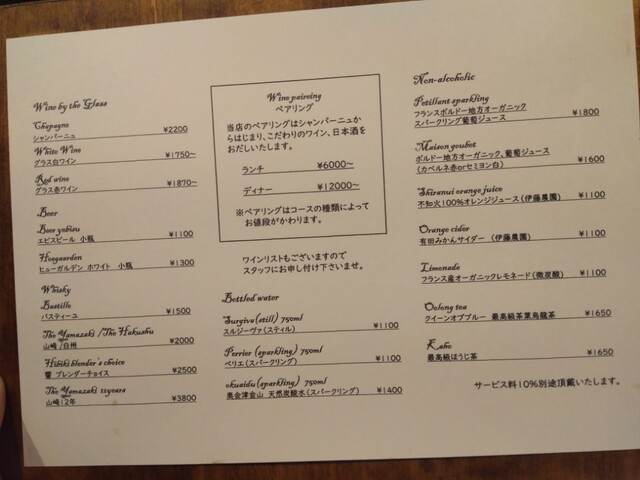 Wine by the Glass
Chapagne
シャンパーニュ ¥2200
White Wine
グラス白ワイン ¥1750～
Red wine
グラス赤ワイン ¥1870～
Beer
Beer yebisu
エビスビール 小瓶 ¥1100
Hoegaarden
ヒューガルデン ホワイト 小瓶 ¥1300
Whisky
Bastille
バスティーユ ¥1500
The Yamazaki /The Hakushu
山崎 /白州 ¥2000
Hibiki blender's choice
響 ブレンダーチョイス ¥2500
The Yamazaki 12years
山崎12年 ¥3800
Wine paireing
ペアリング
当店のペアリングはシャンパーニュか
らはじまり、こだわりのワイン、日本酒を
おだしいたします。
ランチ ¥6000～
ディナー ¥12000～
※ペアリングはコースの種類によって
お値段がかわります。
ワインリストもございますので
スタッフにお申し付け下さいませ。
Bottled water
Surgiva(still) 750ml
スルジーヴァ(スティル) ¥1100
Perrier (sparkling) 750ml
ペリエ(スパークリング) ¥1100
okuaidu(sparkling) 750ml
奥会津金山 天然炭酸水(スパークリング) ¥1400
Non-alcoholic
Petillant sparkling
フランスボルドー地方オーガニック
スパークリング葡萄ジュース ¥1800
Maison goubet
ボルドー地方オーガニック、葡萄ジュース
(カベルネ赤orセミヨン白) ¥1600
Shiranui orange juice
不知火100％オレンジジュース(伊藤農園) ¥1100
Orange cider
有田みかんサイダー (伊藤農園) ¥1100
Limonade
フランス産オーガニックレモネード(微炭酸) ¥1100
Oolong tea
クイーンオブブルー 最高級茶葉烏龍茶 ¥1650
Kaho
最高級ほうじ茶 ¥1650
サービス料10％別途頂戴いたします。